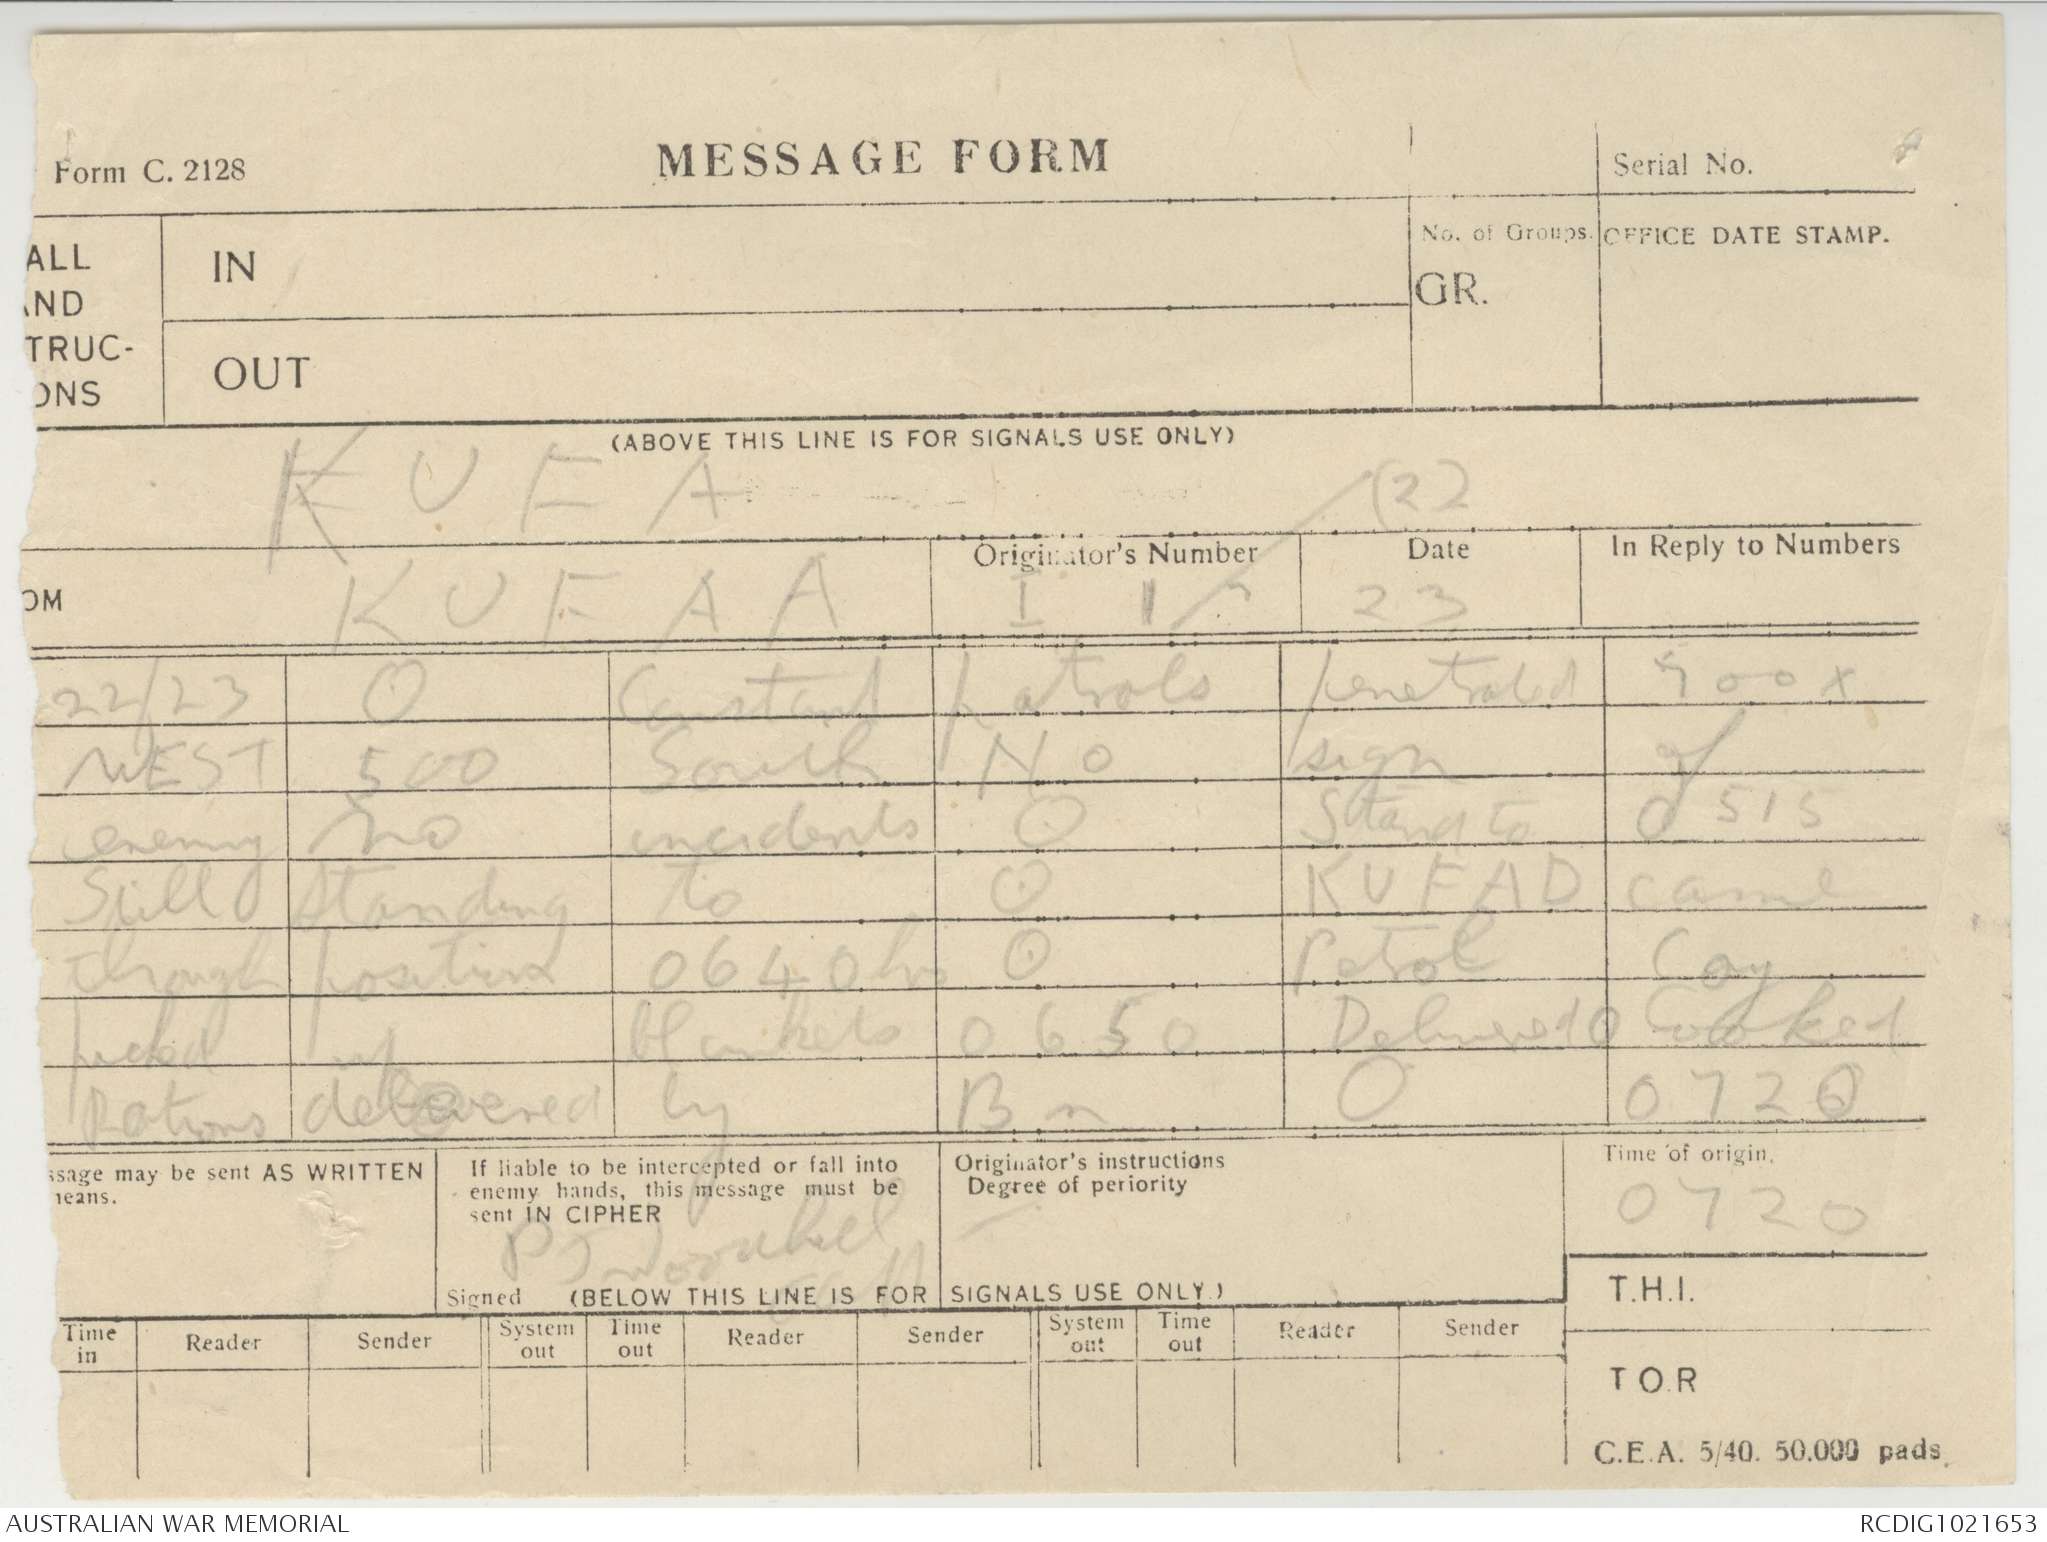 Form C. 2128
MESSAGE FORM
Serial No.
ALL
AND
TRUC-
ONS
IN
OUT
No. of Groups.
GR.
OFFICE DATE STAMP.
(ABOVE THIS LINE IS FOR SIGNALS USE ONLY)
KUFA
(22)
OM
KUFAA
Originator's Number
I 1
Date
23
In Reply to Numbers
22/23 O Constant patrols penetrated 900x
WEST 500 South No sign of
enemy No incidents O Stand to 0515
Still standing to O KUFAD came
through position 0640 hrs O Petrol Coy
picked up blankets 0650 Delivered O Cooked
Rations delivered by Bn O 0720
ssage may be sent AS WRITTEN
means.
If liable to be intercepted or fall into
enemy hands, this message must be
sent IN CIPHER
Signed
Originator's instructions
Degree of periority
Time of origin.
0720
(BELOW THIS LINE IS FOR SIGNALS USE ONLY.)
T.H.I.
Time in
Reader
Sender
System out
Time out
Reader
Sender
System out
Time out
Reader
Sender
T O.R
C.E.A. 5/40. 50.000 pads.
AUSTRALIAN WAR MEMORIAL
RCDIG1021653